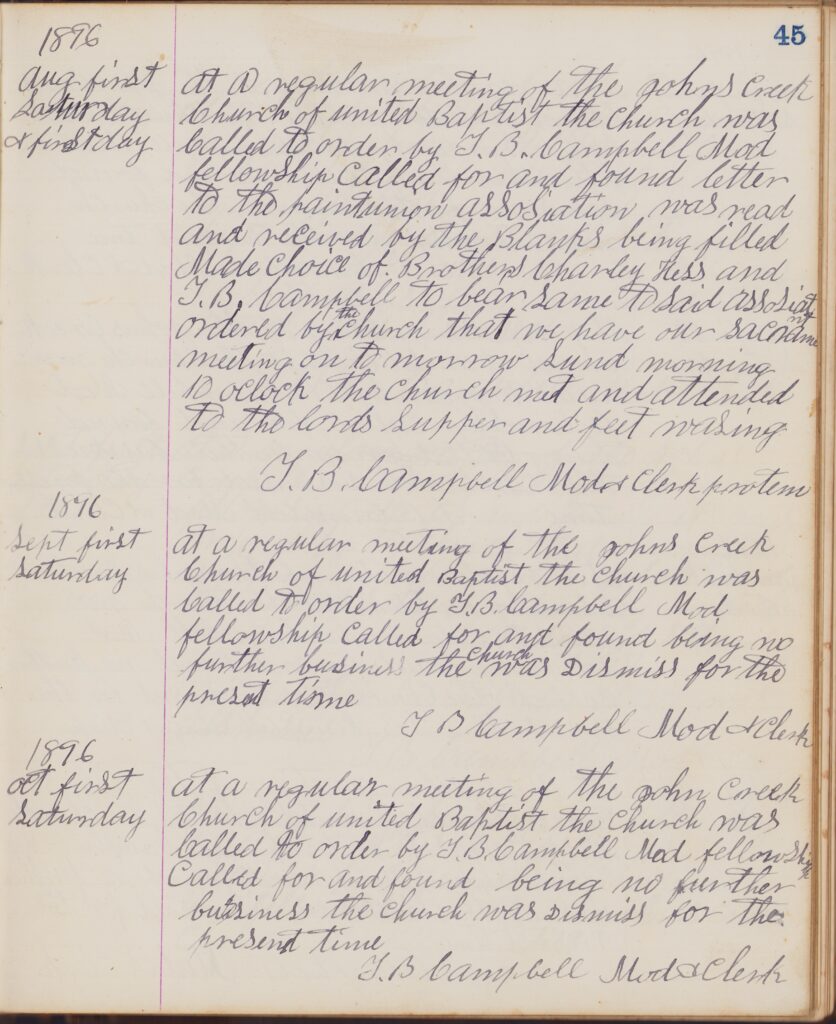 45
1896
Aug first
Saturday
& first day
At a regular meeting of the Johns Creek
Church of united Baptist the Church was
Called to order by T. B. Campbell Mod
fellowship Called for and found letter
to the paintunion assosiation was read
and received by the Blanks being filled
Made Choice of Brothers Charley Hess and
T. B. Campbell to bear same to said assosiat
ordered by the Church that we have our sacrament
meeting on to morrow Sund morning
10 oclock the Church met and attended
to the lords Supper and feet wasing
T. B. Campbell Mod & Clerk protem
1896
Sept first
Saturday
at a regular meeting of the Johns Creek
Church of united Baptist the Church was
Called to order by T. B. Campbell Mod
fellowship Called for and found being no
further business the Church was Dismiss for the
present time
T B Campbell Mod & Clerk
1896
oct first
Saturday
at a regular meeting of the John Creek
Church of united Baptist the Church was
Called to order by T. B. Campbell Mod fellowship
Called for and found being no further
business the Church was Dismiss for the
present time
T. B Campbell Mod & Clerk